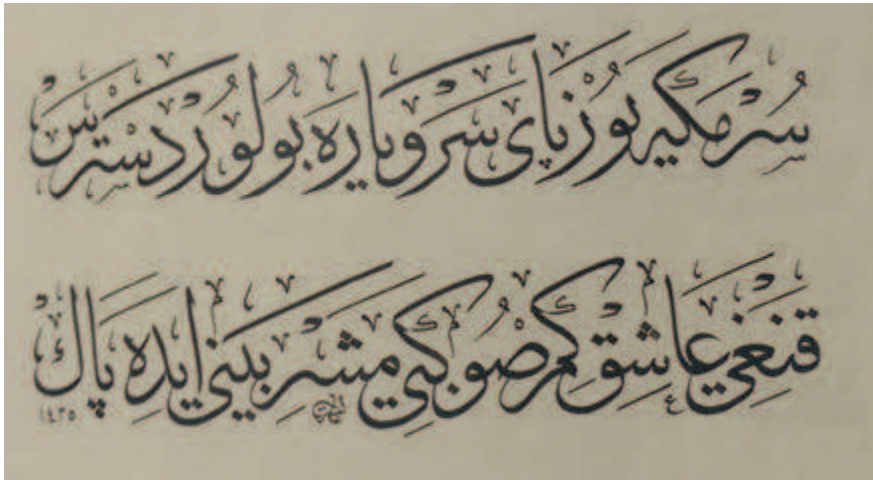 سُرمكه يوز پای سرو ياره بولور دسترس
قنغی عاشق كم صو كبی مشربینی ایده پاك
١٤٣٥